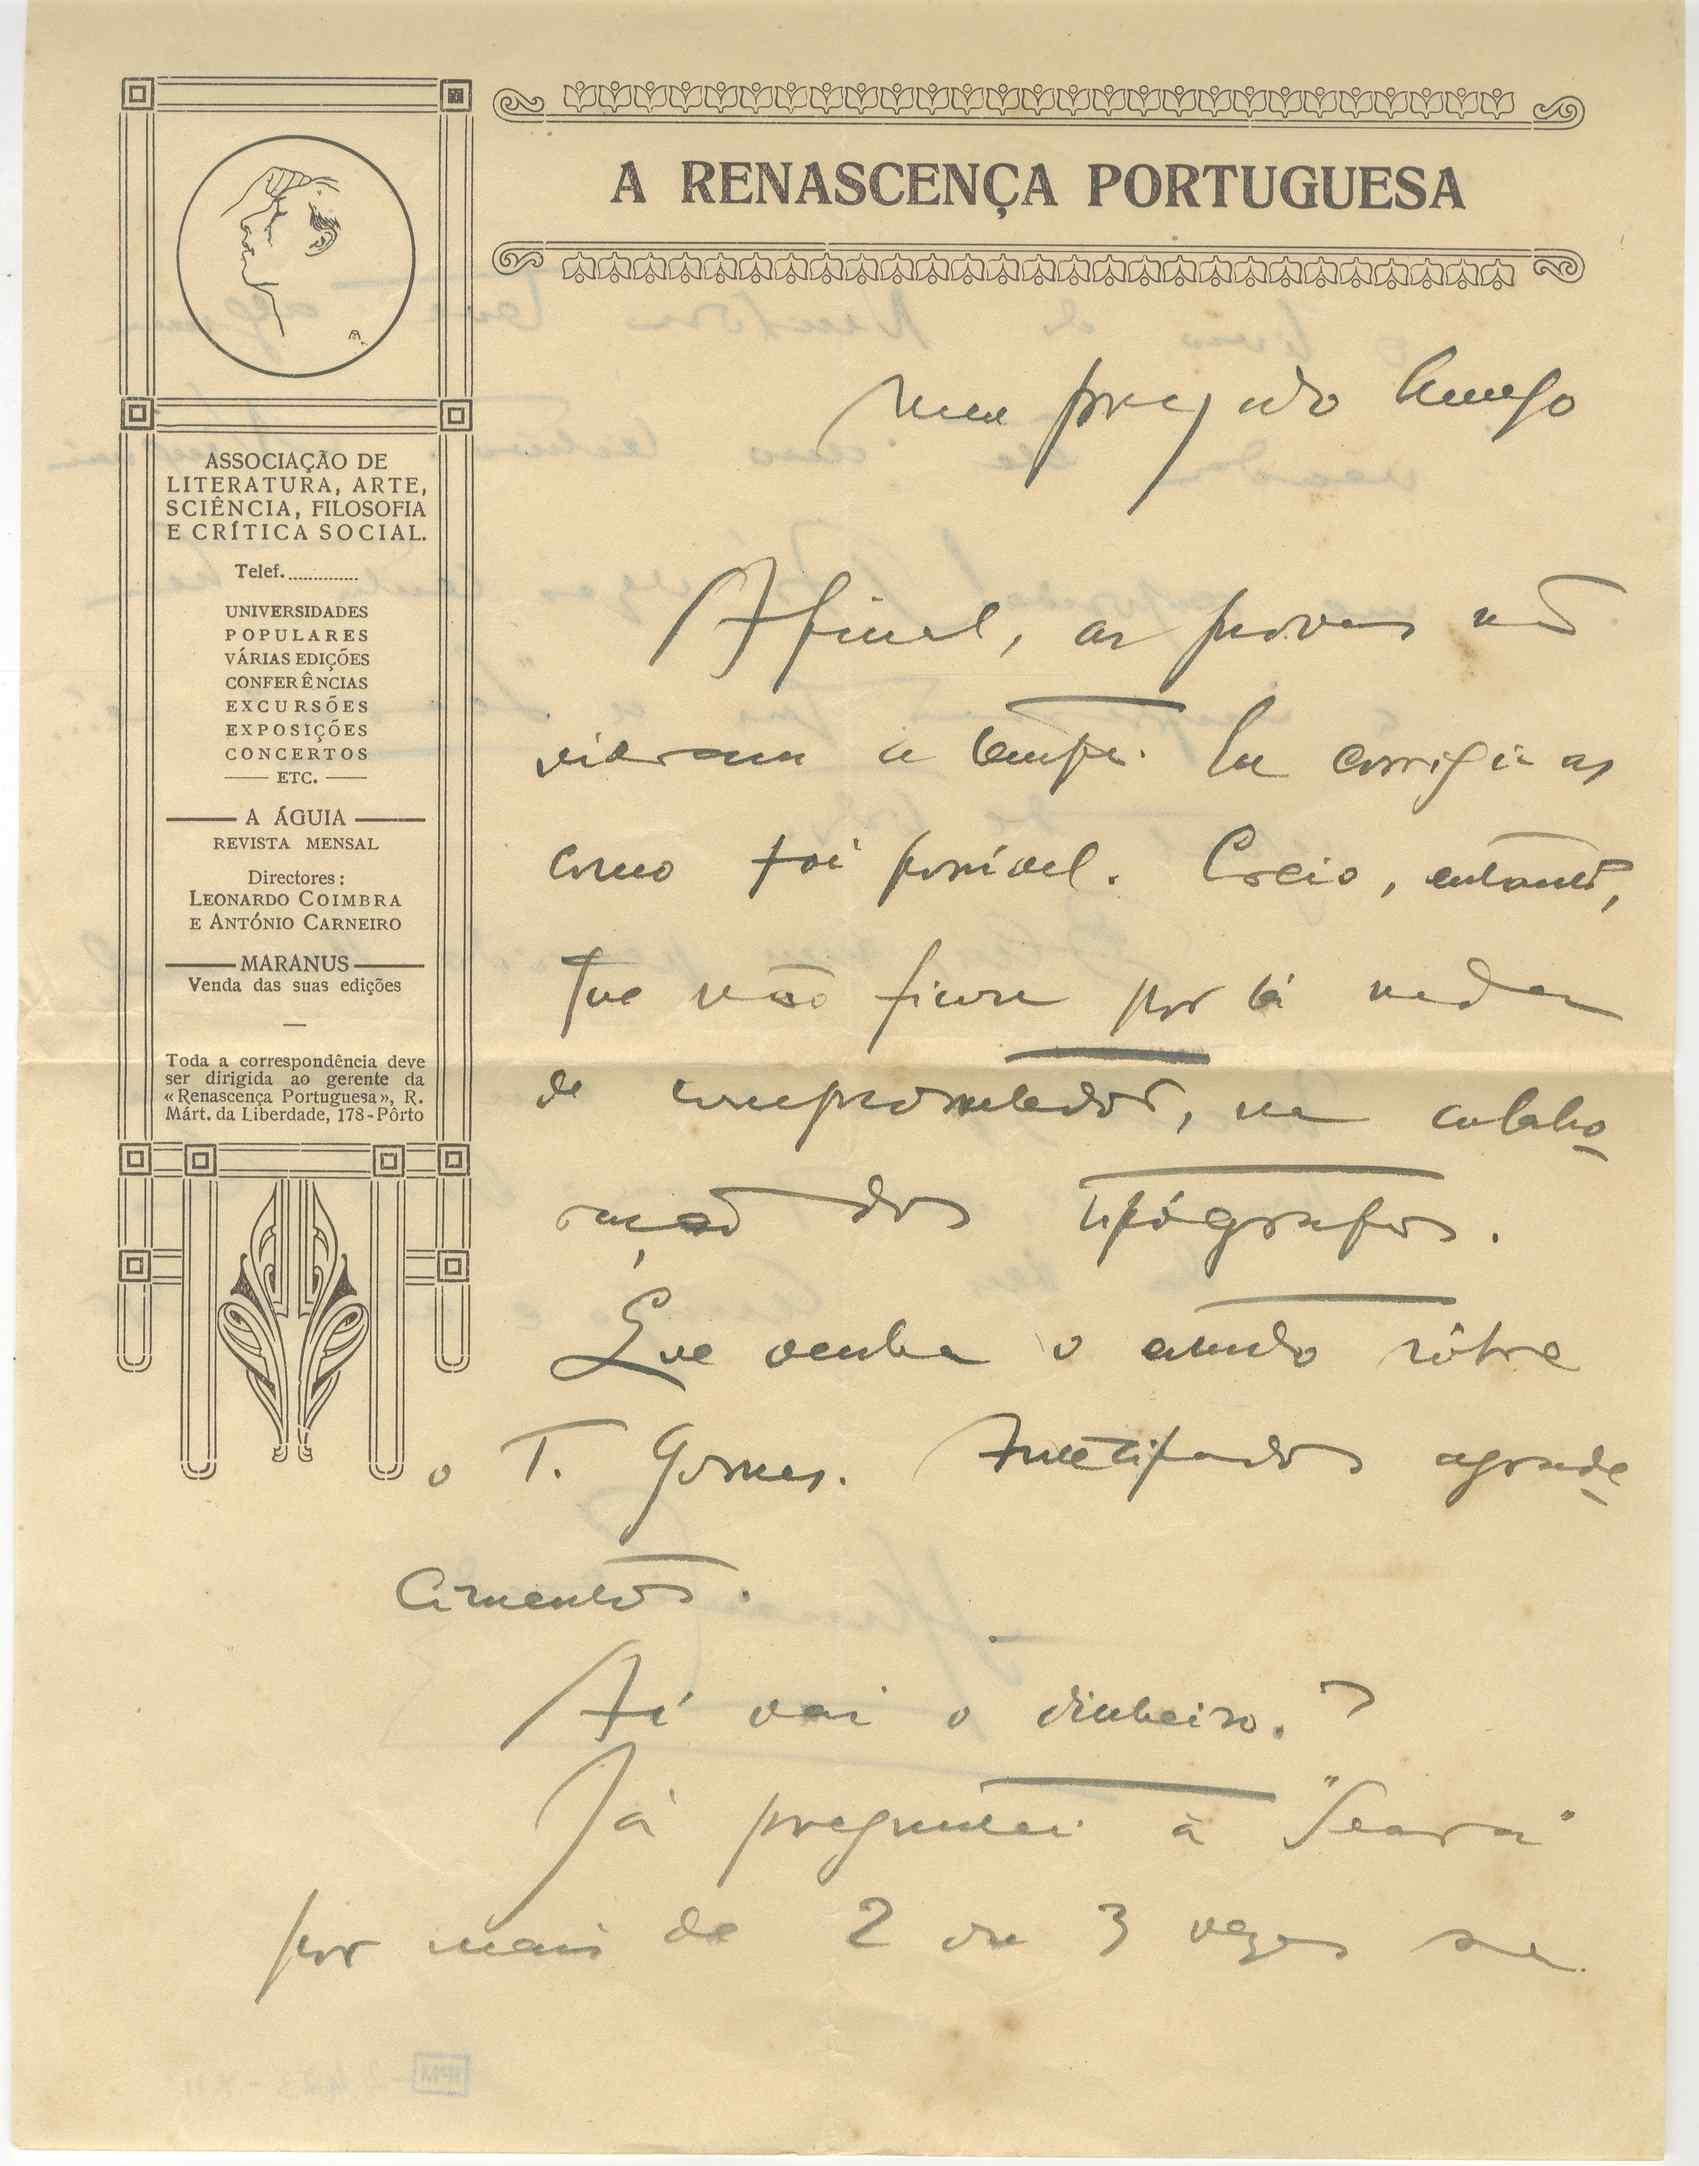 A RENASCENÇA PORTUGUESA
ASSOCIAÇÃO DE
LITERATURA, ARTE,
SCIÊNCIA, FILOSOFIA
E CRÍTICA SOCIAL.
Telef..............
UNIVERSIDADES
POPULARES
VÁRIAS EDIÇÕES
CONFERÊNCIAS
EXCURSÕES
EXPOSIÇÕES
CONCERTOS
ETC.
A ÁGUIA
REVISTA MENSAL
Directores:
LEONARDO COIMBRA
E ANTÓNIO CARNEIRO
MARANUS
Venda das suas edições
Toda a correspondência deve
ser dirigida ao gerente da
«Renascença Portuguesa», R.
Márt. da Liberdade, 178-Pôrto
Meu prezado Amigo
Afinal, as provas não
vieram a tempo. Eu corrigi-as
como foi possível. Creio, entanto,
que não ficou por lá nada
de comprometedor, na colabo
ração dos tipógrafos.
Que venha o estudo sôbre
o T. Gomes. Antecipados agrade
cimentos.
Aí vai o dinheiro.
Já preguntei à "Seara"
por mais de 2 ou 3 vezes se